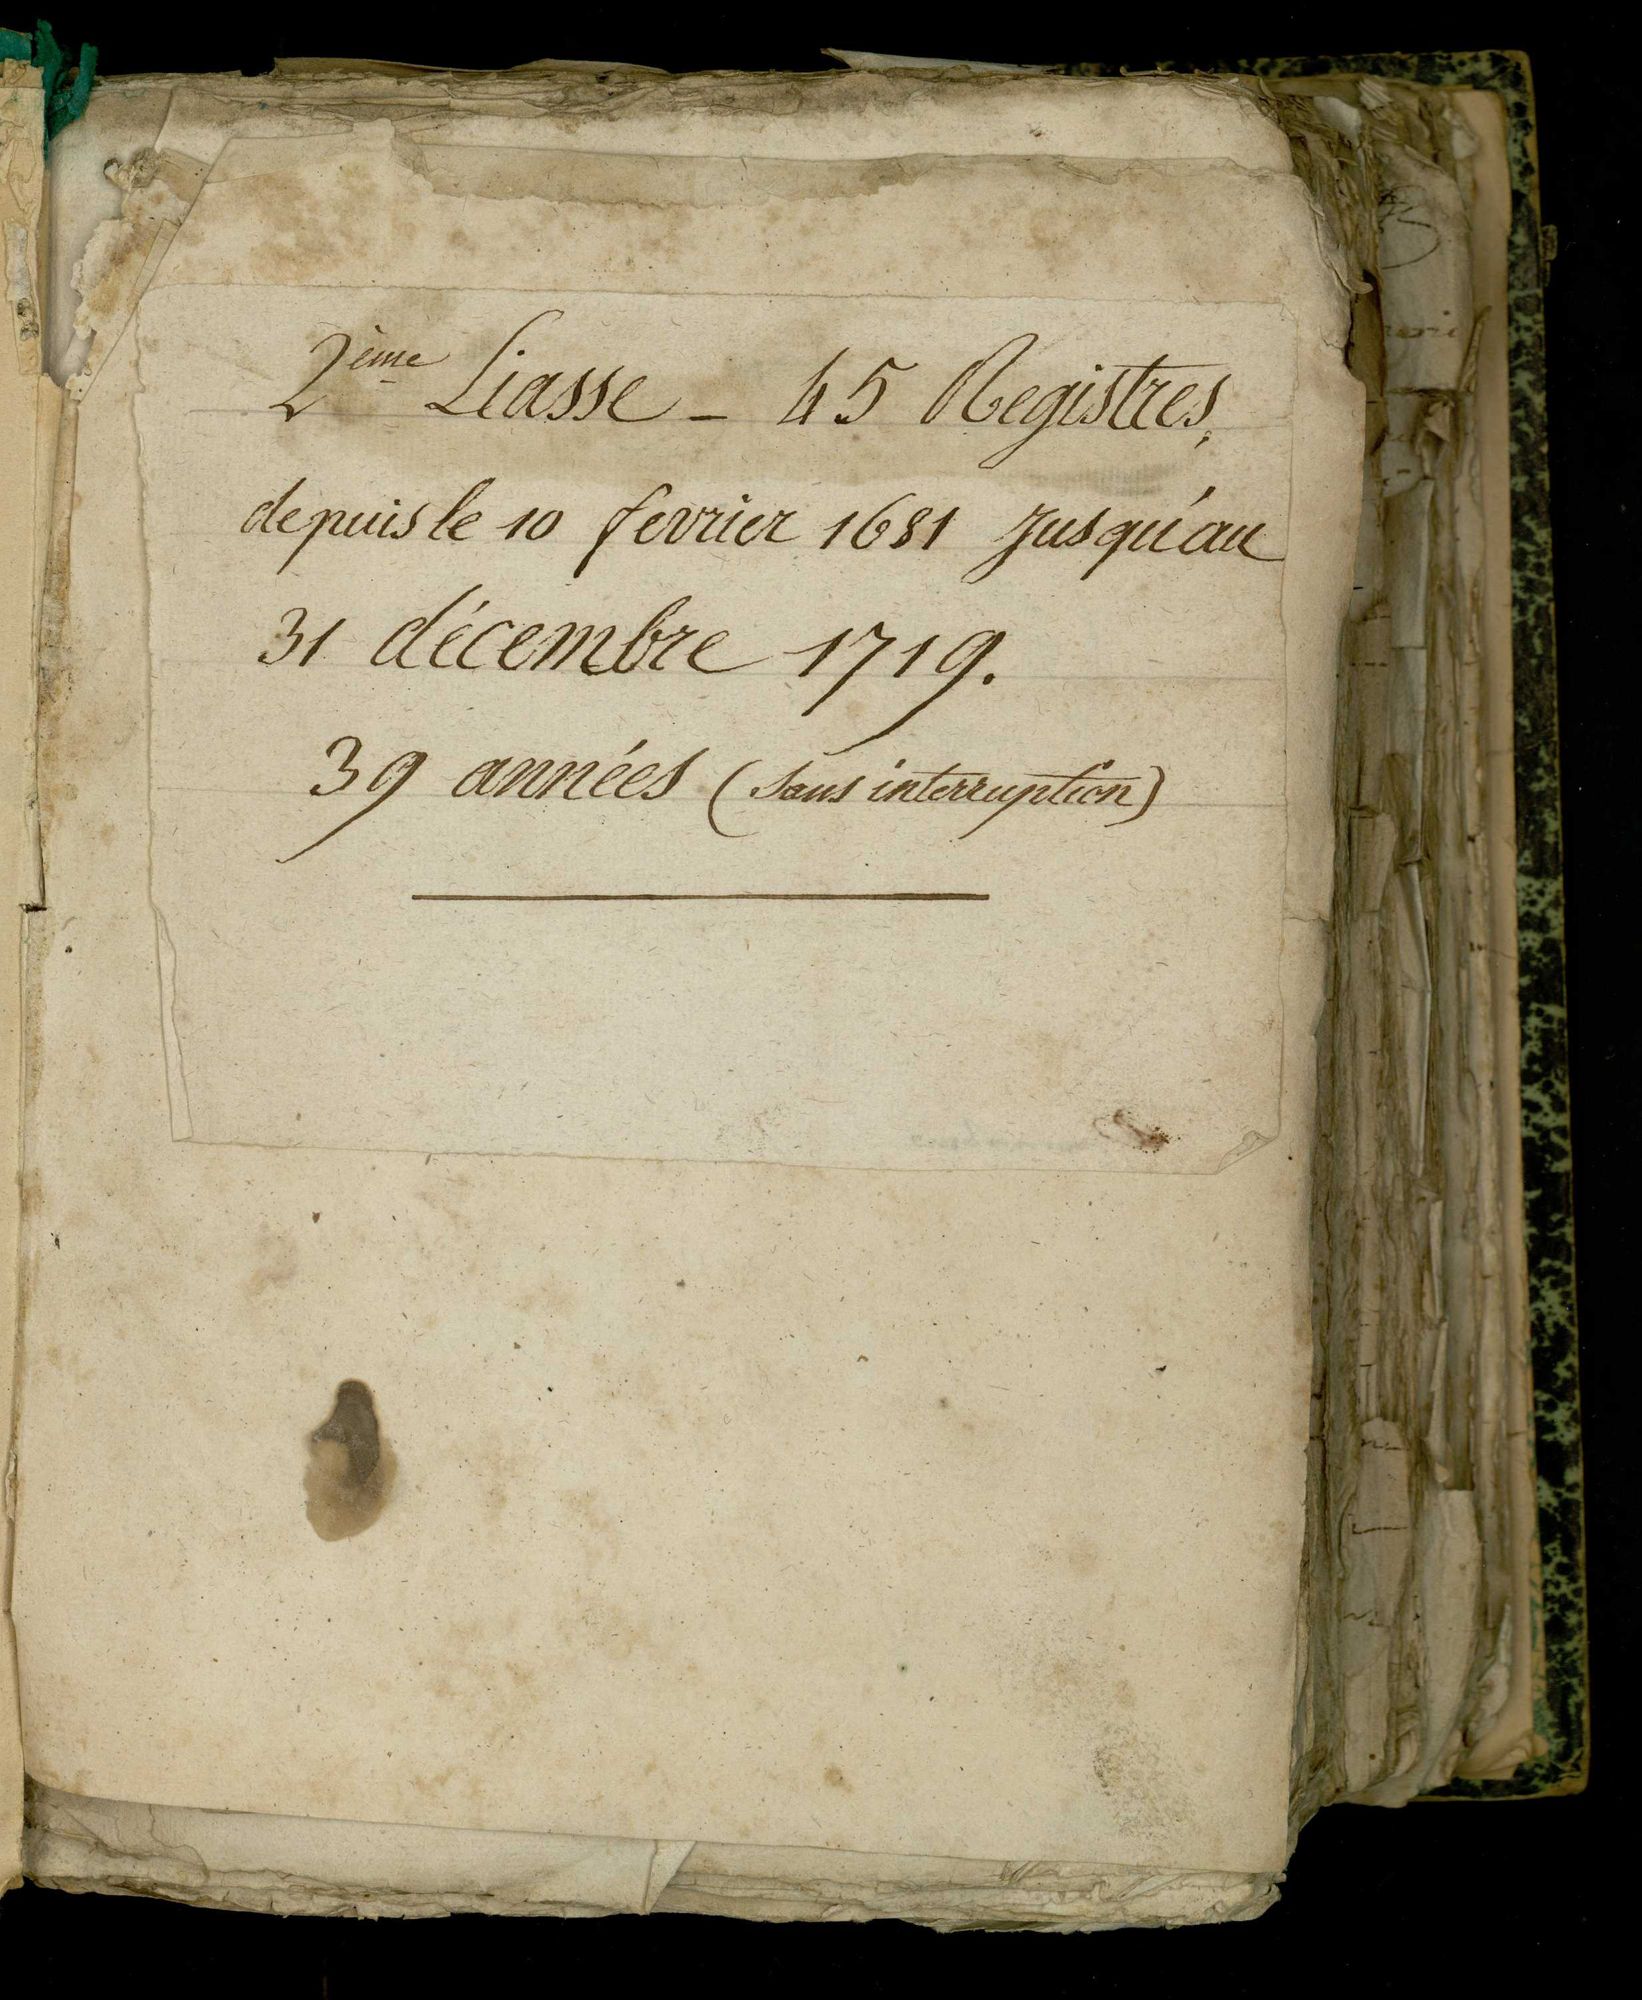 2ème Liasse - 45 Registres,
depuis le 10 fevrier 1681 jusqu'au
31 décembre 1719.
39 années (sans interruption)